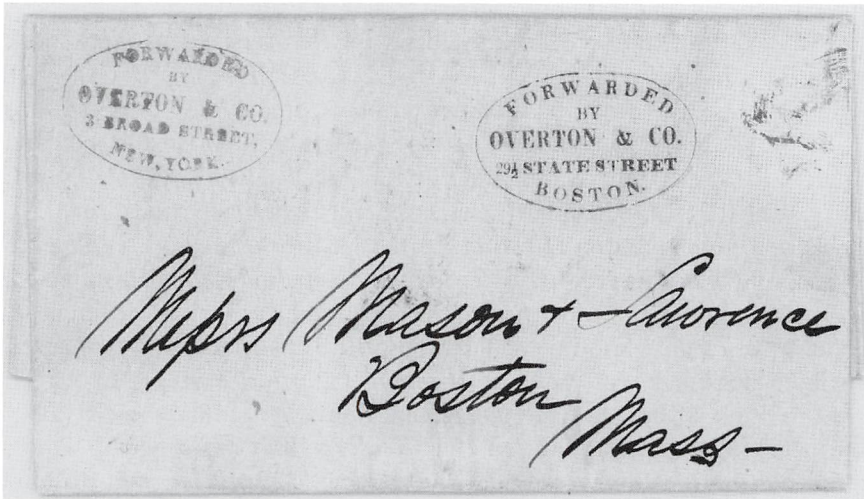 FORWARDED
BY
OVERTON & CO.
3 BROAD STREET,
NEW, YORK.
FORWARDED
BY
OVERTON & CO.
29½ STATE STREET
BOSTON.
Messrs Mason & Lawrence
Boston
Mass –